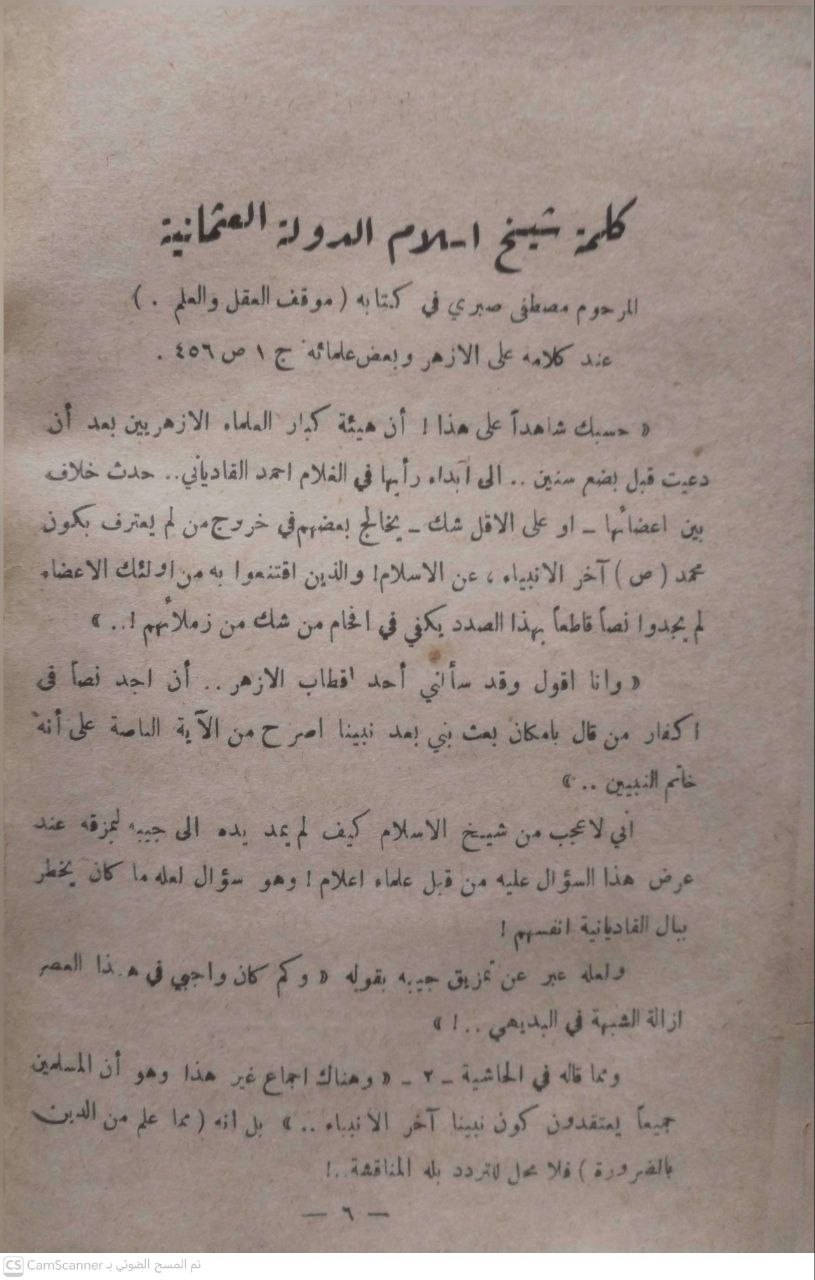 كلمة شيخ اسلام الدولة العثمانية
المرحوم مصطفى صبري في كتابه ( موقف العقل والعلم . )
عند كلامه على الازهر وبعض علمائه ج ١ ص ٤٥٦ .
« حسبك شاهداً على هذا ! أن هيئة كبار العلماء الازهريين بعد أن
دعيت قبل بضع سنين .. الى ابداء رأيها في الغلام احمد القادياني.. حدث خلاف
بين اعضائها ــ او على الاقل شك ــ يخالج بعضهم في خروج من لم يعترف بكون
محمد ( ص ) آخر الانبياء ، عن الاسلام! والذين اقتنعوا به من اولئك الاعضاء
لم يجدوا نصاً قاطعاً بهذا الصدد يكفي في افحام من شك من زملائهم !.. »
« وانا اقول وقد سألني أحد اقطاب الازهر .. أن اجد نصاً في
اكفار من قال بامكان بعث نبي بعد نبينا اصرح من الآية الناصة على أنه
خاتم النبيين .. »
اني لاعجب من شيخ الاسلام كيف لم يمد يده الى جيبه ليمزقه عند
عرض هذا السؤال عليه من قبل علماء اعلام ! وهو سؤال لعله ما كان يخطر
ببال القاديانية انفسهم !
ولعله عبر عن تمزيق جيبه بقوله « وكم كان واجبي في هذا العصر
ازالة الشبهة في البديهي ..! »
ومما قاله في الحاشية ــ ٢ ــ « وهناك اجماع غير هذا وهو أن المسلمين
جميعاً يعتقدون كون نبينا آخر الانبياء .. » بل انه ( مما علم من الدين
بالضرورة ) فلا محل للتردد بله المناقشة..!
— ٦ —
تم المسح الضوئي بـ CamScanner CS